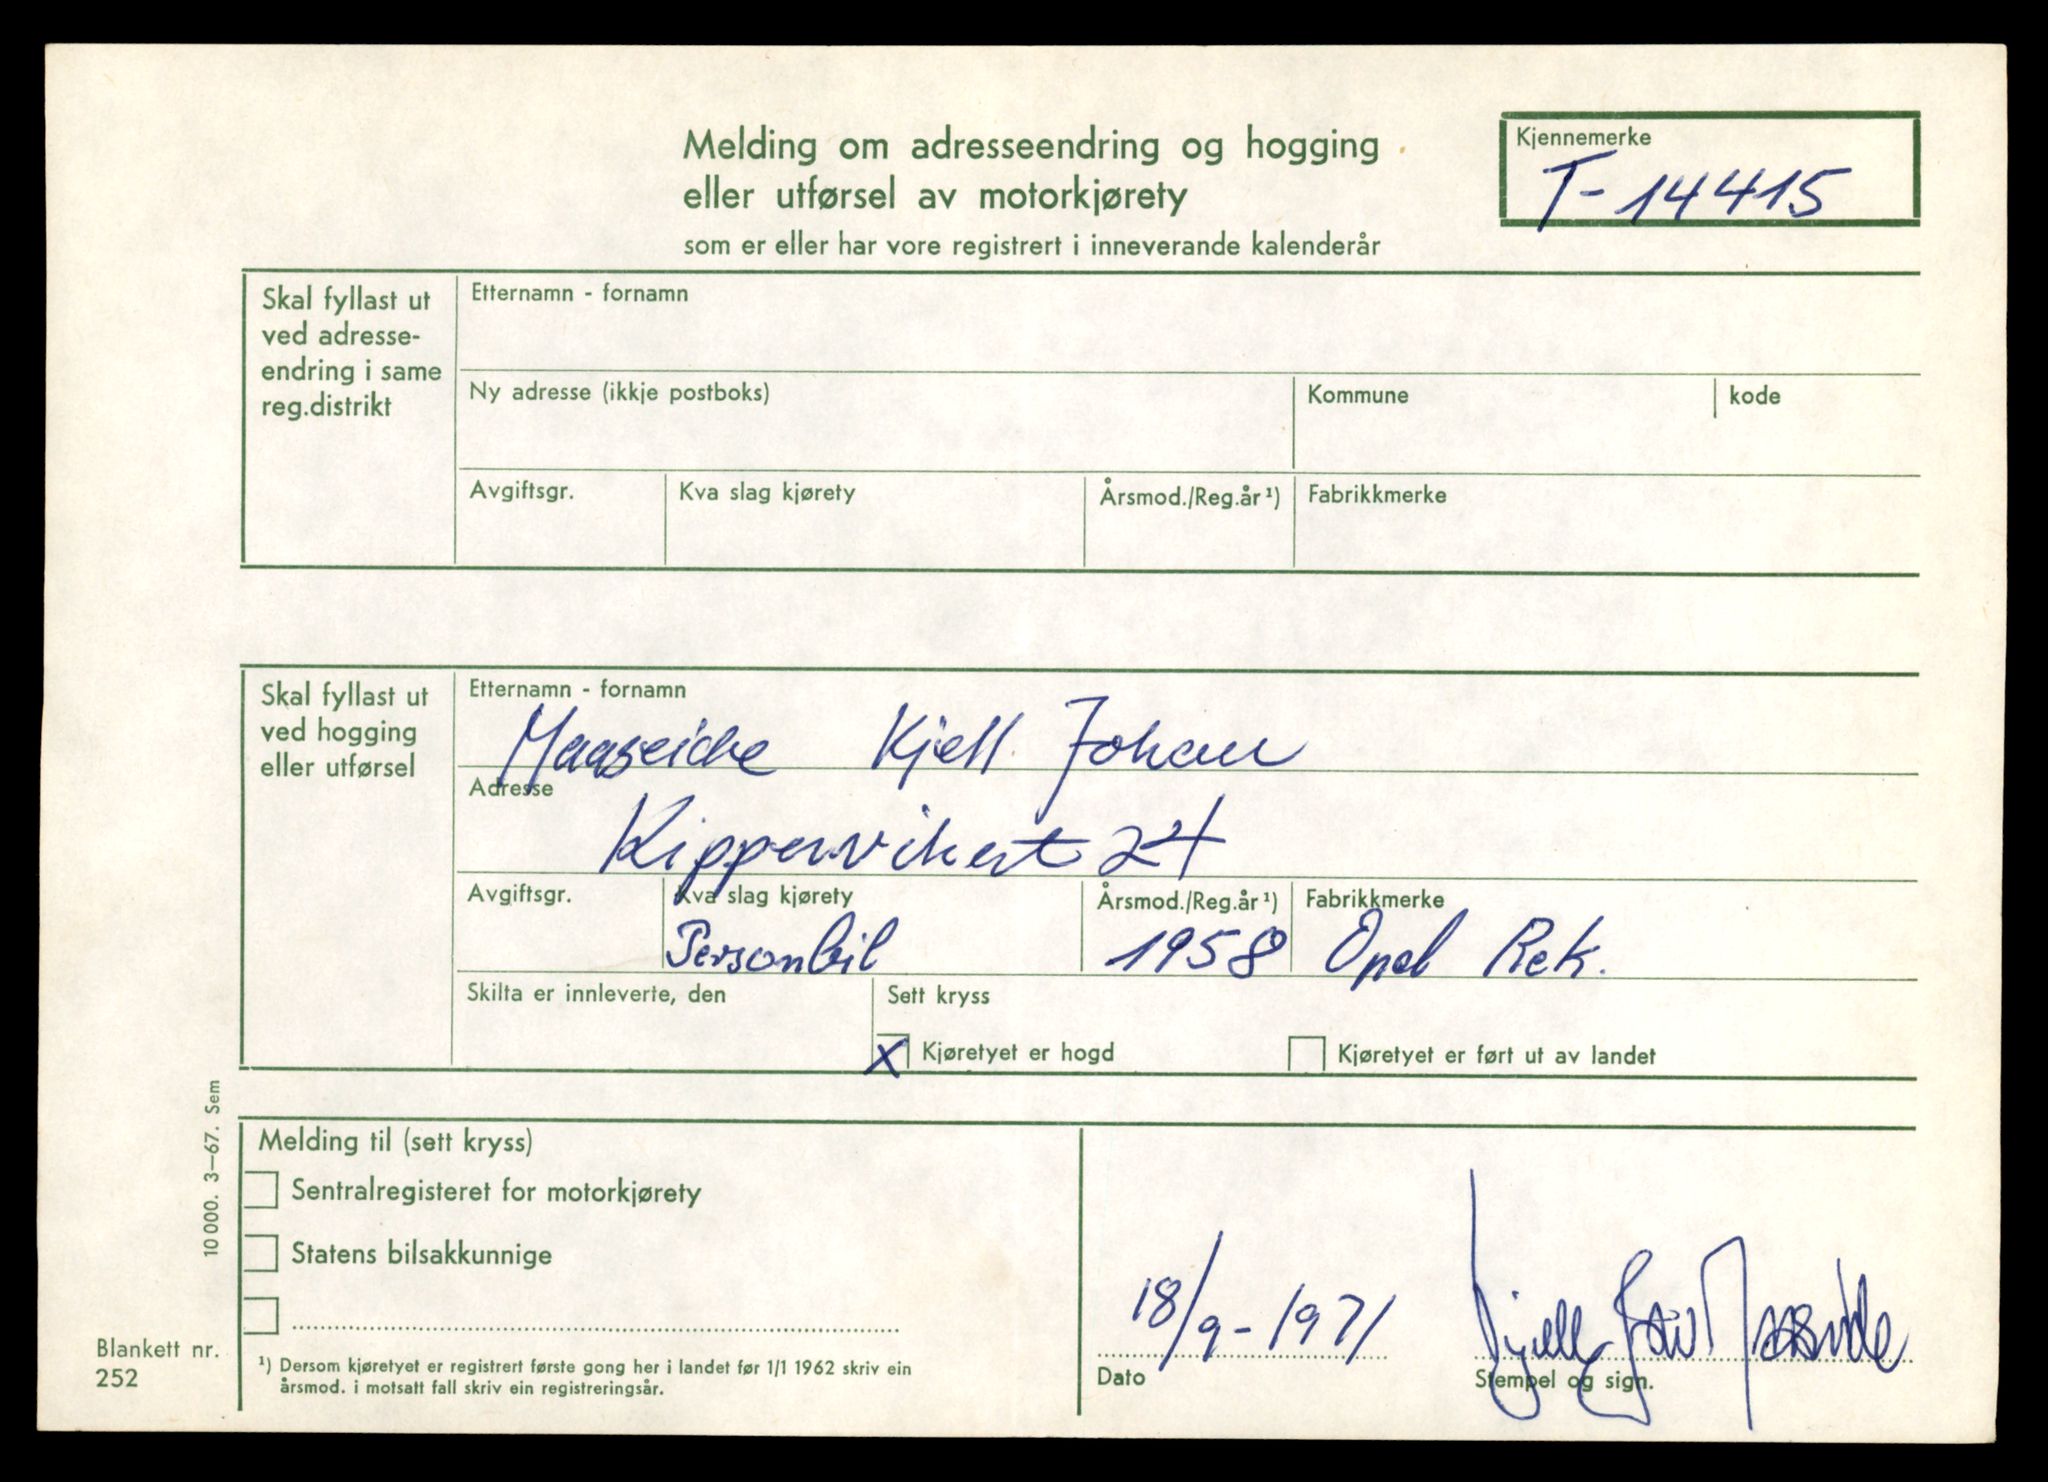 Melding om adresseendring og hogging
eller utførsel av motorkjørety
som er eller har vore registrert i inneverande kalenderår
Kjennemerke
T-14415
Skal fyllast ut
ved adresse-
endring i same
reg.distrikt
Etternamn - fornamn
Ny adresse (ikkje postboks)
Kommune
kode
Avgiftsgr.
Kva slag kjørety
Årsmod./Reg.år¹)
Fabrikkmerke
Skal fyllast ut
ved hogging
eller utførsel
Etternamn - fornamn
Maaseide Kjell Johan
Adresse
Kippervikert 24
Avgiftsgr.
Kva slag kjørety
Personbil
Årsmod./Reg.år¹)
1958
Fabrikkmerke
Opel Rek.
Skilta er innleverte, den
Sett kryss
X Kjøretyet er hogd
Kjøretyet er ført ut av landet
Melding til (sett kryss)
Sentralregisteret for motorkjørety
Statens bilsakkunnige
¹) Dersom kjøretyet er registrert første gong her i landet før 1/1 1962 skriv ein
årsmod. i motsatt fall skriv ein registreringsår.
18/9-1971
Dato
Stempel og sign.
10000. 3-67. Sem
Blankett nr.
252